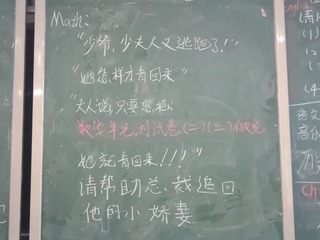 Math:
"少爷,少夫人又逃跑了!"
"她怎样才肯回来"
"夫人说,只要您把
数学单元测试卷(二)(三)做完
她就肯回来!!!"
请帮助总裁追回
他的小娇妻
(1)
(2)
(4